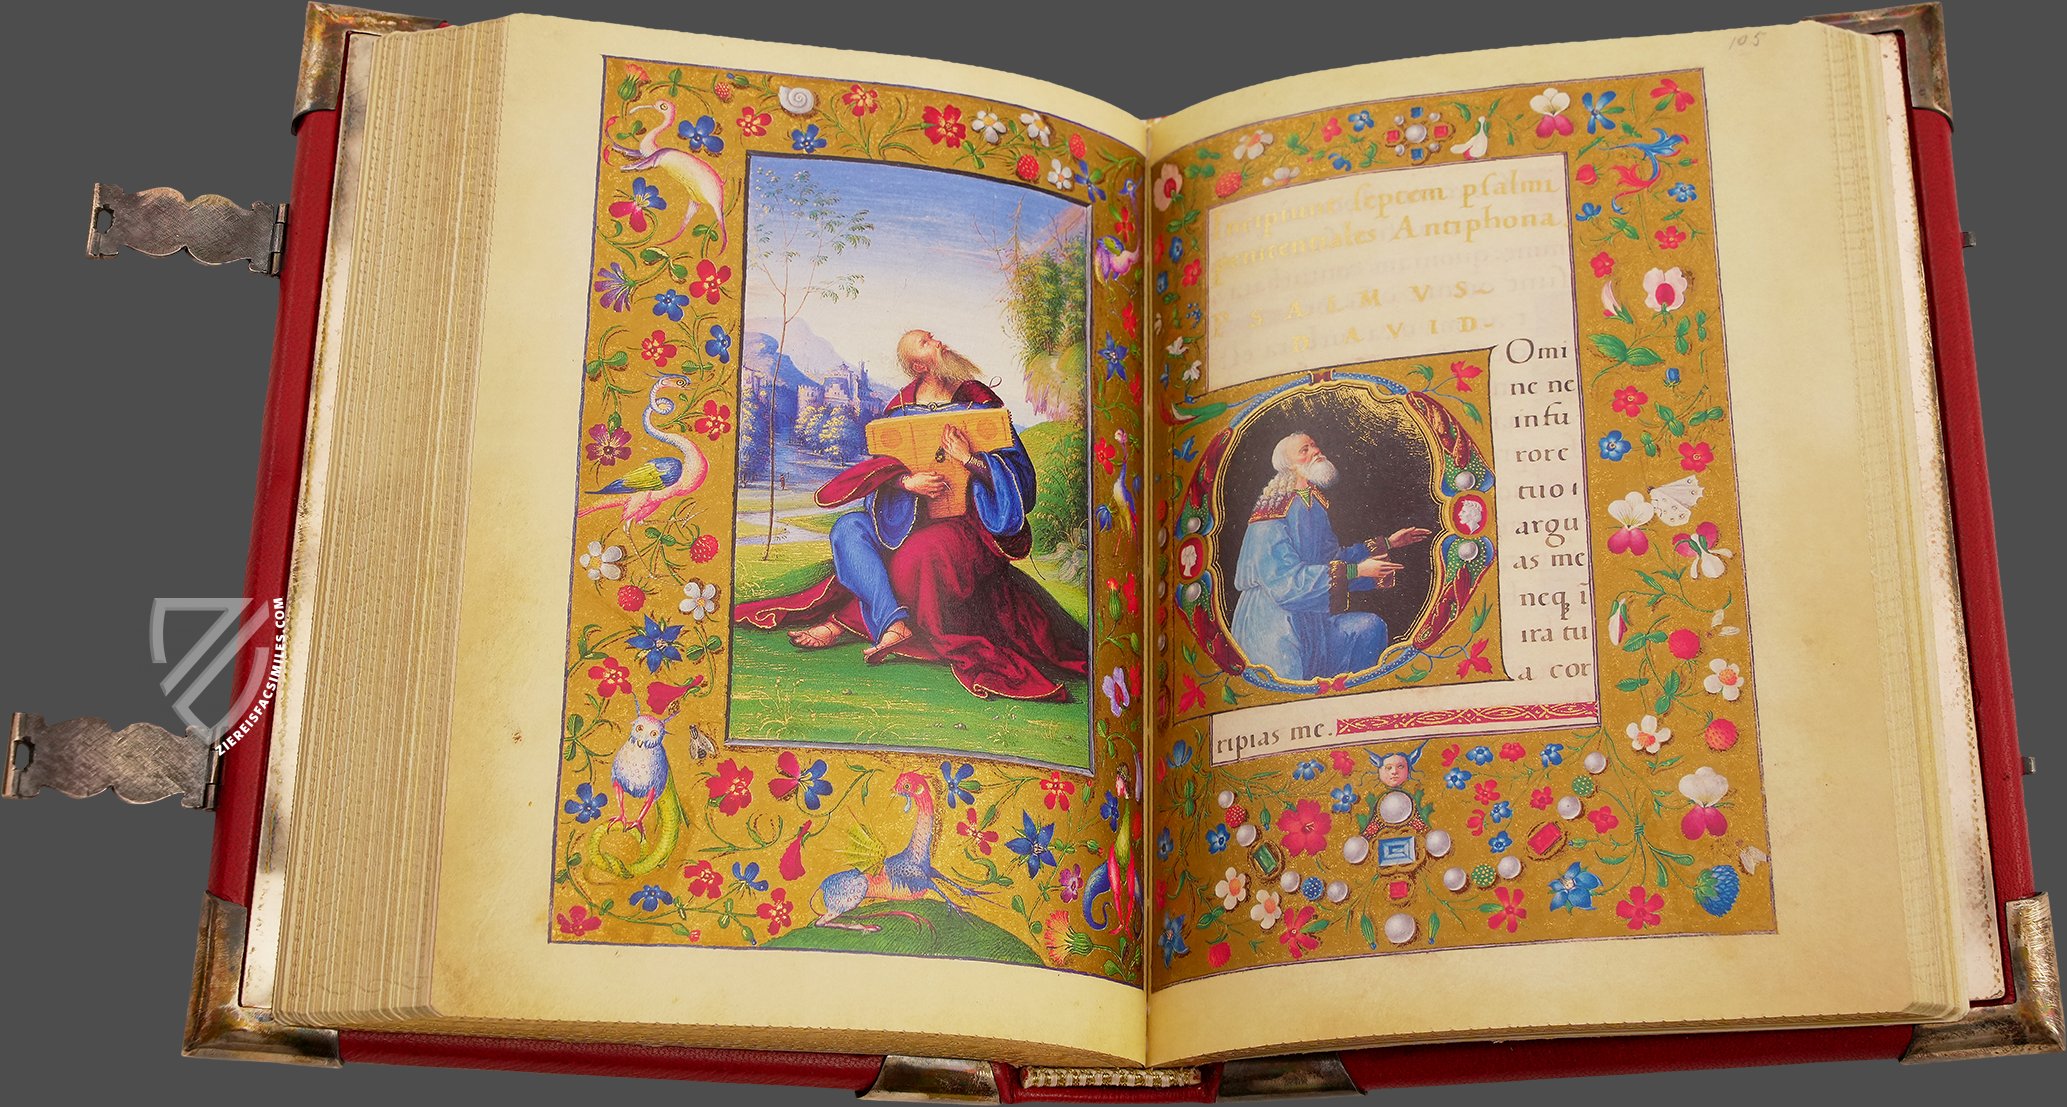 105
Incipiunt septem psalmi
penitentiales Antiphona
PSALMVS
DAVID
Omi
ne ne
infu
rore
tuo
argu
as me
neqꝫ ī
ira tu
a cor
ripias me.
ZIEREISFACSIMILES.COM